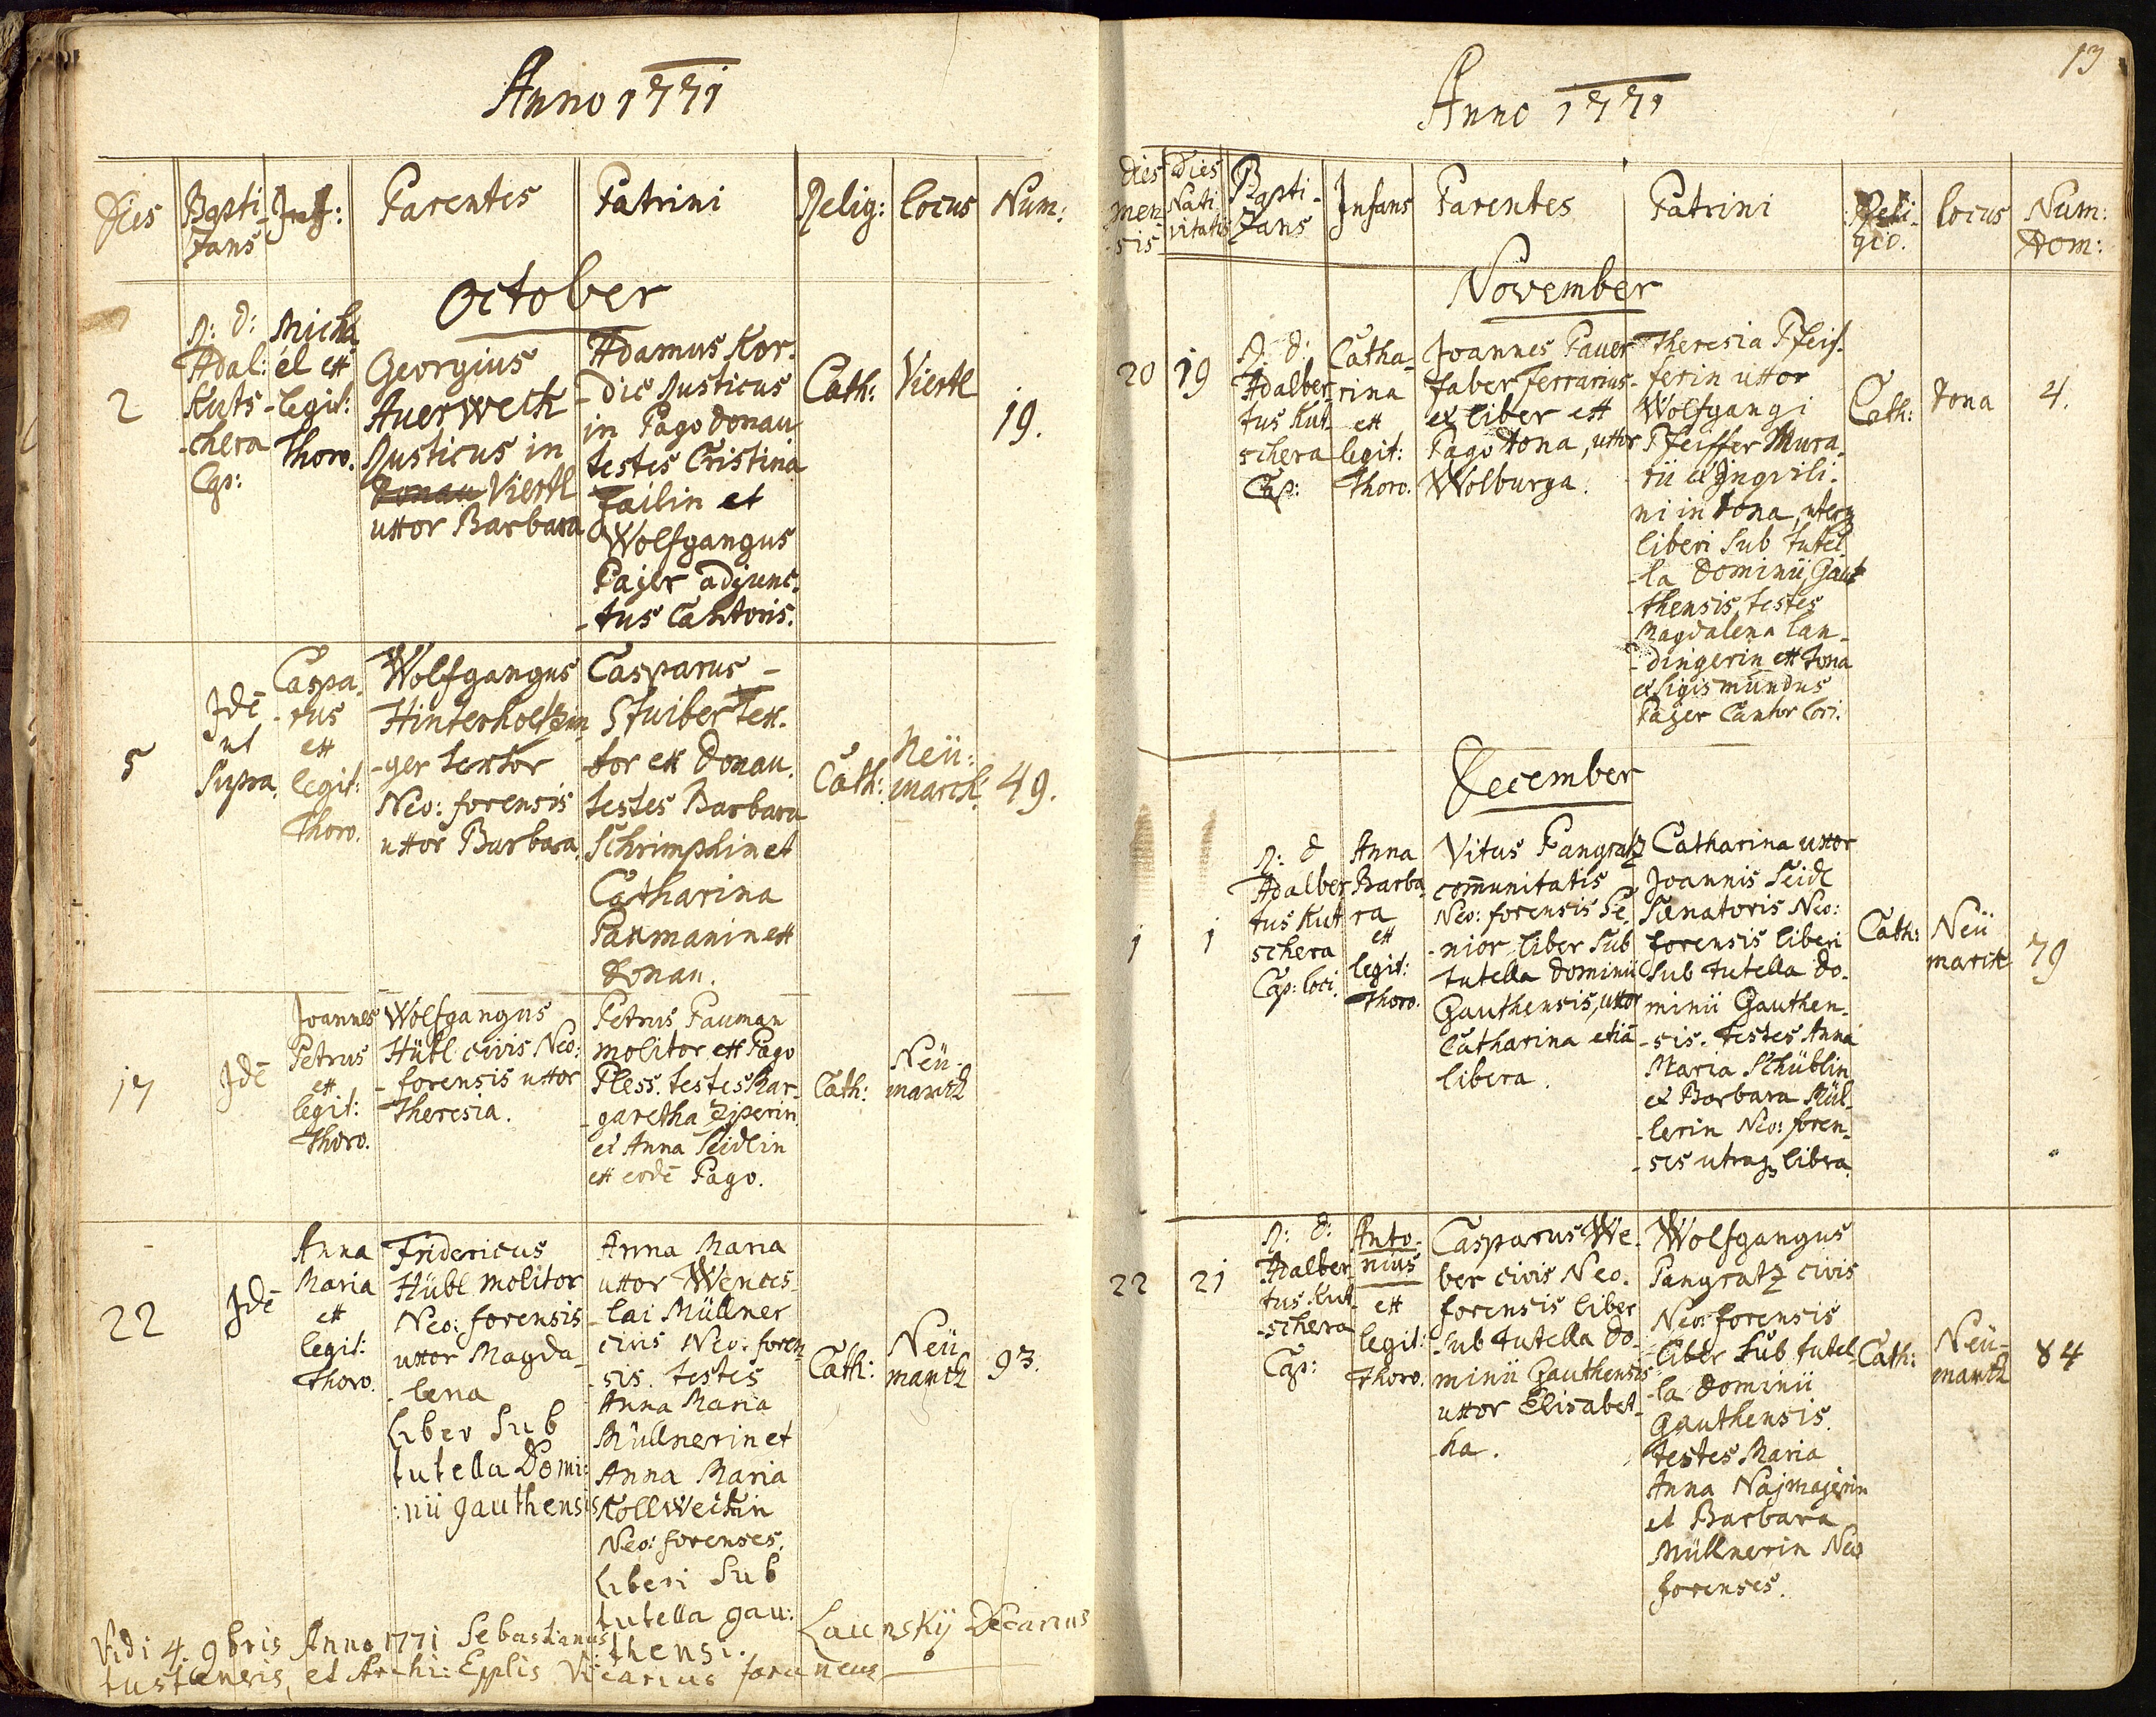 Anno 1771
Dies
Bapti-
zans
Inf:
Parentes
Patrini
Relig:
Locus
Num:
October
2
R: D:
Adal:
Kuts-
-chera
Cap:
Micha
él ex
legit:
Thoro.
Georgius
Auerweck
Rusticus in
Donau Viertl
uxor Barbara
Adamus Kor-
-dic Rusticus
in Pago Donau
testes Cristina
Failin et
Wolfgangus
Pajer adjunc-
-tus Cantoris.
Cath:
Viertl
19.
5
Idē
ut
Supra.
Caspa-
-rus
ex
legit:
Thoro.
Wolfgangus
Hinterholtzin
-ger textor
Neo: forensis
uxor Barbara.
Casparus -
Stuiber tex-
-tor ex Donau.
testes Barbara
Schrimphin et
Catharina
Paumanin ex
Donau.
Cath:
Neü:
marck.
49.
17
Idē
Joannes
Petrus
ex
legit:
Thoro.
Wolfgangus
Hübl civis Neo:
-forensis uxor
Theresia.
Petrus Pauman
molitor ex Pago
Pless. testes Mar-
-garetha Ziperin
et Anna Seidlin
ex eodē Pago.
Cath:
Neü-
marck
22
Idē
Anna
Maria
ex
legit:
Thoro.
Fridericus
Hübl molitor
Neo: forensis
uxor Magda-
-lena
Liber Sub
tutella Domi:
:nii gauthensis
Anna Maria
uxor Wences-
-lai Müllner
civis Neo: foren-
-sis. testes
Anna Maria
Müllnerin et
Anna Maria
Kollweckin
Neo: forenses.
Liberi Sub
tutella gau:
:thensi.
Cath:
Neü
marck
93.
Vidi 4. 9bris Anno 1771 Sebastianus Launskÿ Decanus
tustensis, et Archi: Epplis Vicarius foraneus
13
Anno 1771
Dies
men
sis
Dies
Nati
vitatis
Bapti-
zans
Infans
Parentes
Patrini
Reli-
gio.
Locus
Num:
Dom:
November
20
19
R: D:
Adalber
tus Kut
schera
Cap:
Catha-
rina
ex
legit:
Thoro.
Joannes Pauer
faber ferrarius
et liber ex
Pago Tona, uxor
Wolburga.
Theresia Pfeif-
ferin uxor
Wolfgangi
Pfeiffer Mura-
rii et Inqvili-
ni in Tona, uterq
liberi Sub tutel
-la Dominii Gaut
-thensis, testes
Magdalena Lan-
-dingerin ex Tona
et Sigismundus
Pajer Cantor loci.
Cath:
Tona
4.
December
1
1
R: D
Adalber
tus Kut
schera
Cap: loci.
Anna
Barba
ra
ex
legit:
Thoro.
Vitus Pangratz
com̄unitatis
Neo: forensis Se-
-nior, liber Sub
tutella Dominii
Gauthensis, uxor
Catharina etiā
libera.
Catharina uxor
Joannis Seidl
Senatoris Neo:
forensis liberi
Sub tutella Do-
minii Gauthen-
-sis. testes Anna
Maria Schüblin
et Barbara Mül-
-lerin Neo: foren-
-sis utraq libera.
Cath:
Neü
marck
79
22
21
R: D:
Adalber
tus Kut
-schera
Cap:
Anto-
nius
ex
legit:
Thoro.
Casparus We-
ber civis Neo-
forensis liber
sub tutella Do-
minii Gauthensis
uxor Elisabet-
-ha.
Wolfgangus
Pangratz civis
Neo: forensis
liber Sub tutel-
-la Dominii
Gauthensis.
testes Maria
Anna Najmajerin
et Barbara
Müllnerin Neo
forenses.
Cath:
Neü-
marck
84